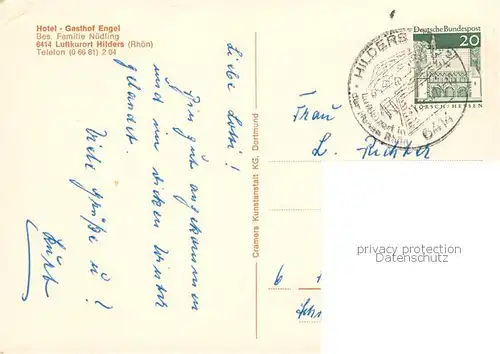 Hotel - Gasthof Engel
Bes. Familie Nüdling
6414 Luftkurort Hilders (Rhön)
Telefon (0 66 81) 2 04
Liebe Lotti!
Bin gut angekommen
und im dicken Winter
gelandet.
Viele Grüße
Cramers Kunstanstalt KG, Dortmund
Deutsche Bundespost
20
LORSCH/HESSEN
HILDERS
Luftkurort in
Rhön
Frau
L. Richter
6
privacy protection
Datenschutz